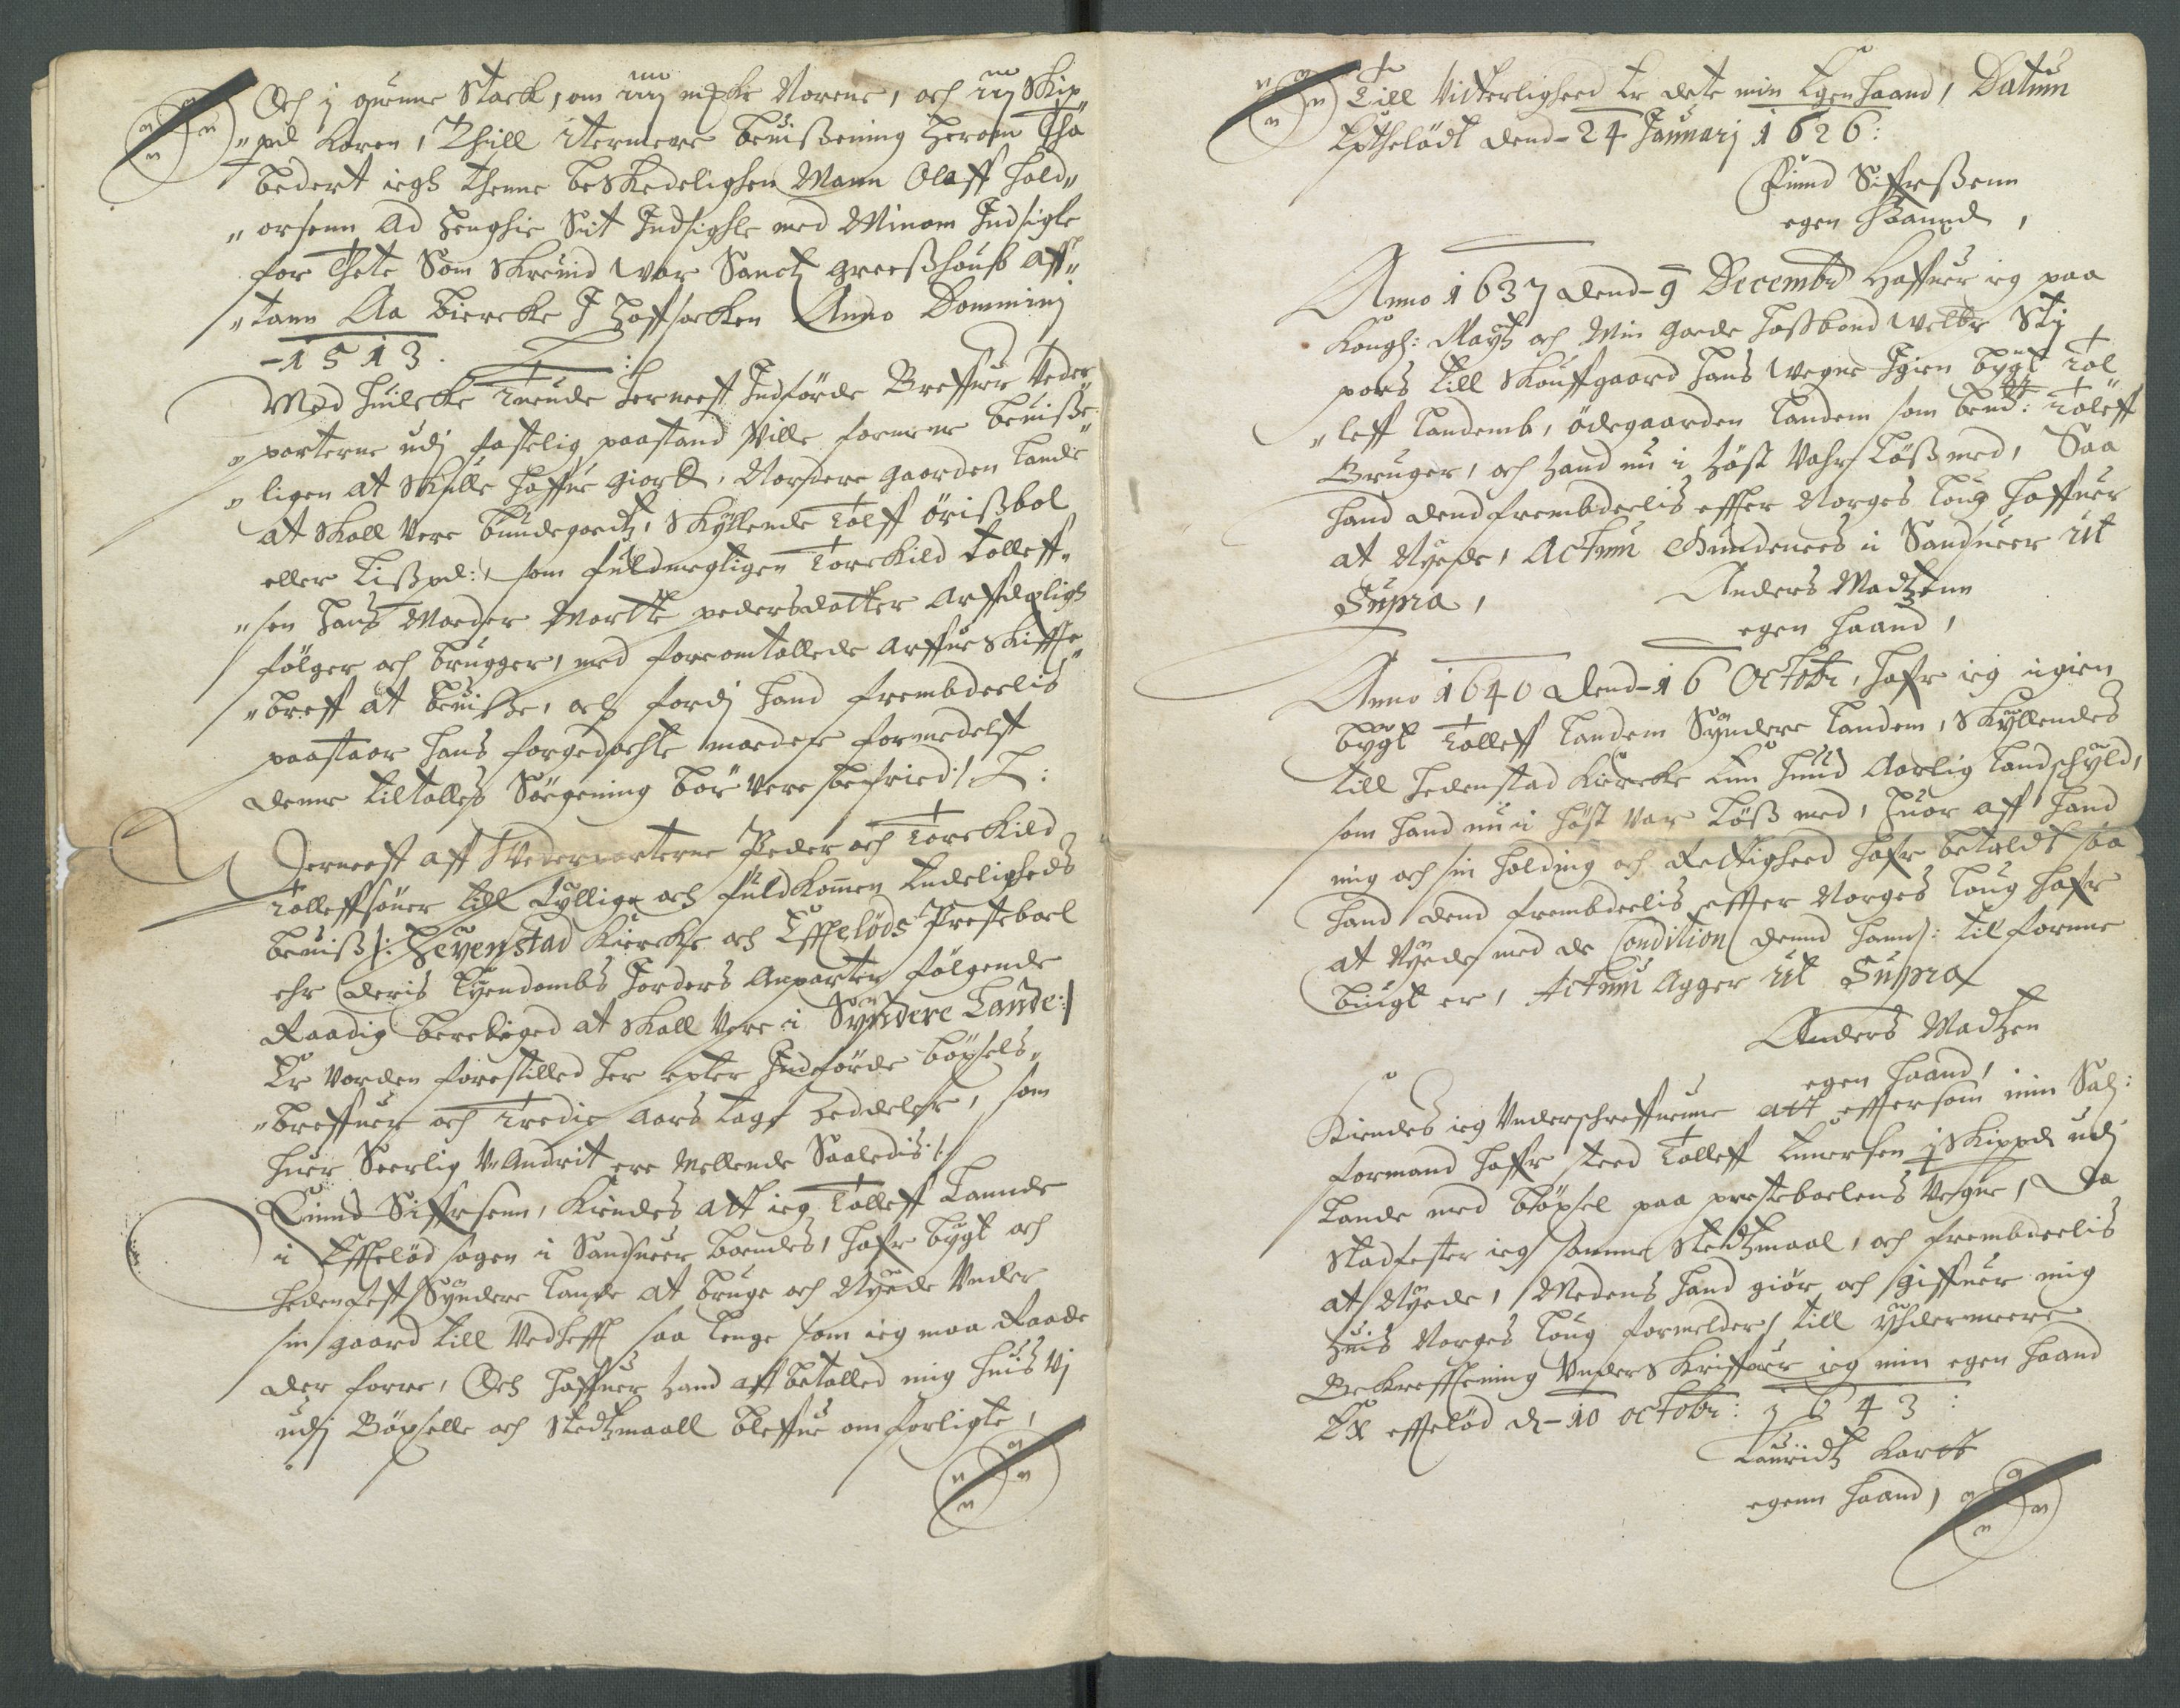 Och j grenne Stack, om iiij mrke Norene, och iij Skip
"pd Koren, Thill itermere beuißening herom Tha
bedert iegh thenne beskedelighen Mann Olaff Hald"
"orsenn Ad henghie Sit Indsighle med Minom Indsigle
for Thete Som Skreuid War Sanct greeßhouß aff"
"tann Aa biercke I Hoffsocken Anno Dominnj
-1513.
Med huilcke tuende herneest Indførde Breffuer Veder
"parterne udj fastelig paastand Ville formene beuiße"
"ligen at Skulle haffue giort, Norstere gaarden Lande
at Skall Vere bundegodtz, Skyllende tolff ørißbol
eller Lißpd: som fuldmegtigen Torckild tolleff"
"sen hans Moeder Marthe pedersdatter Arffdeeligh
følger och brugger, med foreomtallede arffue Skiffte
"breff at beuiße, och fordj hand frembdeelis
paastaar hans forgedachte moeder formedelst
denne tiltalles Søgening bør vere befried
Herneest aff Wederparterne Peder och Torckild
tolleffsøner till Lyllige och fuldkommen Endeligheds
beuiß: Hevenstad Kiercke och Effteløds Presteboel
ehr deris Eyendombs Jorders Anparter følgende
Raadig beretiged at skall Vere i Syndere Lande:
Er vorden forestilled her epter Indførde bøxsels"
"breffuer och tredie Aars tags Zeddeler, som
huer Seerlig Ved Andrit ere mellende Saaledis:
Eiuind Siffrsenn, Kiendes att ieg Tolleff Lannde
i Efftelød sogen i Sandsuer boendes, hafr bygt och
hedenfest Syndere Lande at bruge och Nyede Under
sin gaard till Vedtheffl saa lenge som ieg maa Raade
der forre, Och haffuer hand aff betalled mig huis Vj
udj Bøxselle och Stedtzmaall bleffue om forligte,
Till Vitterligheed Er dete min Egen Haand, Datum
Eptheløedt dend-24 Januarj 1626:
Eiuind Siffrßenn
egen Haannd,
Anno 1637 dend-9 Decembr Haffuer ieg paa
Kongl: Maytz och Min goede Hoßbond Welbr Sty
pors till Skouffgaard hans Wegne Igien bygt Tol
"leff Landemb, ødegaarden Landem som bemt: Tolleff
Bruger, och hand nu i høst Vahr Løß med, Saa
hand dend frembdeelis effter Norges Loug haffuer
at Nyede, Actum Gundenees i Sandsuer ut
Supra, Anders Madtzenn
egen haand,
Anno 1640 dend-16 Octobr, hafr ieg igien
bygt Tolleff Landem Syndere Landem, Skyllendes
till hedenstad Kiercke Enn huud Aarlig Landschyld,
som hand nu i høst var Løß med, huor aff hand
mig och sin holding och Rettigheed hafr betaldt saa
hand dend frembdeelis effter Norges Loug hafr
at Nyede med de Condition dennd hannd: tilforne
biugt er, Actum Agger ut Supra
Anders Madtzen
egen Haand,
Kiendes ieg Underschreffuenne att effttersom min Sal:
formand haffr steed Tolleff Enersen j Skippd udj
Lande med bøxsel paa presteboelens Vegne, Da
Stadfester ieg samme Stedtzmaal, och frembdeelis
at Nyede, Medens hand giør och giffuer mig
huis Norges Loug formelder, till ythermeere
Bekrefftening Under Skriffuer ieg min egen haand
Ex effteløed d-10 octobr: 1643:
Lauridtz Kortt
egenn haand,